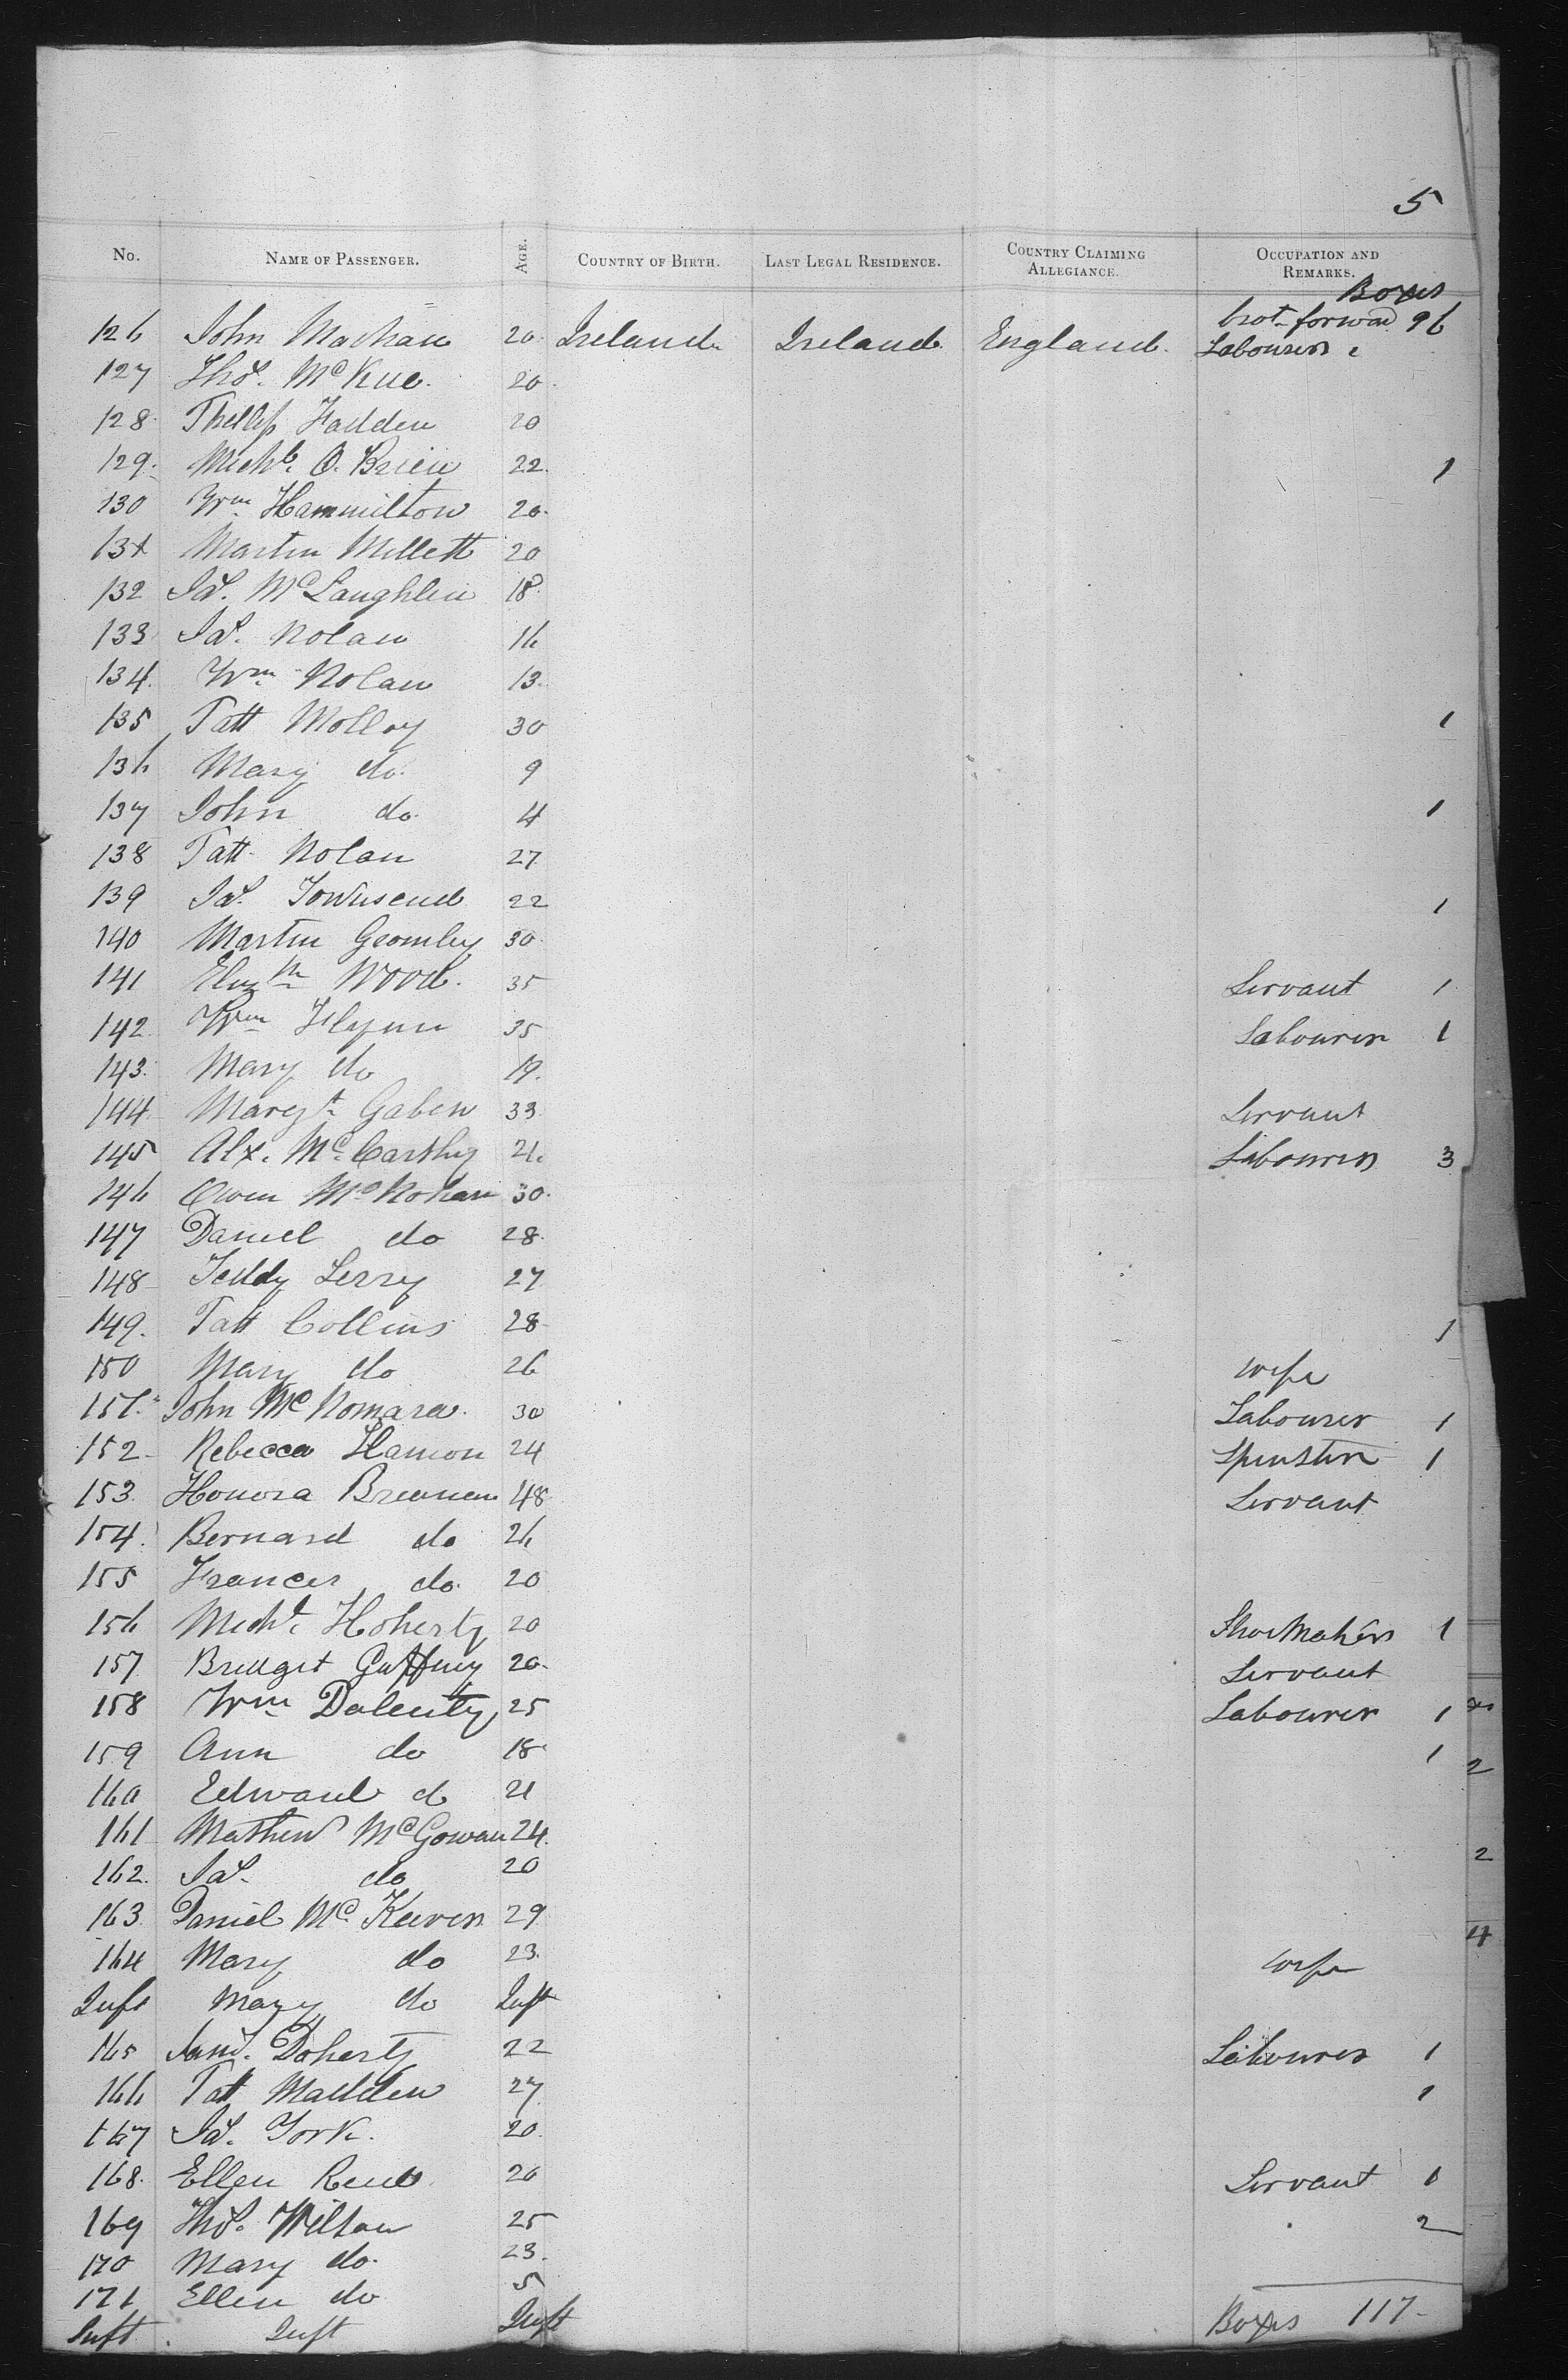 5
No. NAME OF PASSENGER. AGE. COUNTRY OF BIRTH. LAST LEGAL RESIDENCE. COUNTRY CLAIMING ALLEGIANCE. OCCUPATION AND REMARKS.
Boxes
brot forward 96
126 John Machan 20 Ireland Ireland England Labourer
127 Thos. McKue 20
128 Phillip Fadden 20
129 Michl. O.Brien 22 1
130 Wm Hammilton 20
131 Martin Millett 20
132 Jas. McLaughlin 18
133 Jas. Nolan 16
134 Wm Nolan 13
135 Patt Molloy 30 1
136 Mary do 9
137 John do 4 1
138 Patt Nolan 27
139 Jas. Townsend 22 1
140 Martin 30
141 Elizth Wood 35 Servant 1
142 Wm Flynn 35 Labourer 1
143 Mary do 19
144 Margt Gaben 33 Servant
145 Alx. McCarthy 21 Labourer 3
146 Owen 30
147 Daniel do 28
148 Teddy Lerry 27
149 Patt Collins 28 1
150 Mary do 26 wife
151 John McNomara 30 Labourer 1
152 Rebecca Hamon 24 Spinster 1
153 Honora Brennen 48 Servant
154 Bernard do 26
155 Frances do 20
156 Michl. Hoherty 20 ShoeMaker 1
157 Bridget Gaffney 20 Servant
158 Wm Dalenty 25 Labourer 1
159 Ann do 18 1
160 Edward do 21
161 Mathew McGowan 24
162 Jas. do 20
163 Daniel McKeever 29
164 Mary do 23 wife
Inft Mary do Inft
165 Doherty 22 Labourer 1
166 Pat Madden 27 1
167 Jas. York 20
168 Ellen 20 Servant 1
169 Thos. Wilson 25 2
170 Mary do 23
171 Ellen do 5
Inft Inft Inft
Boxes 117
2
2
4